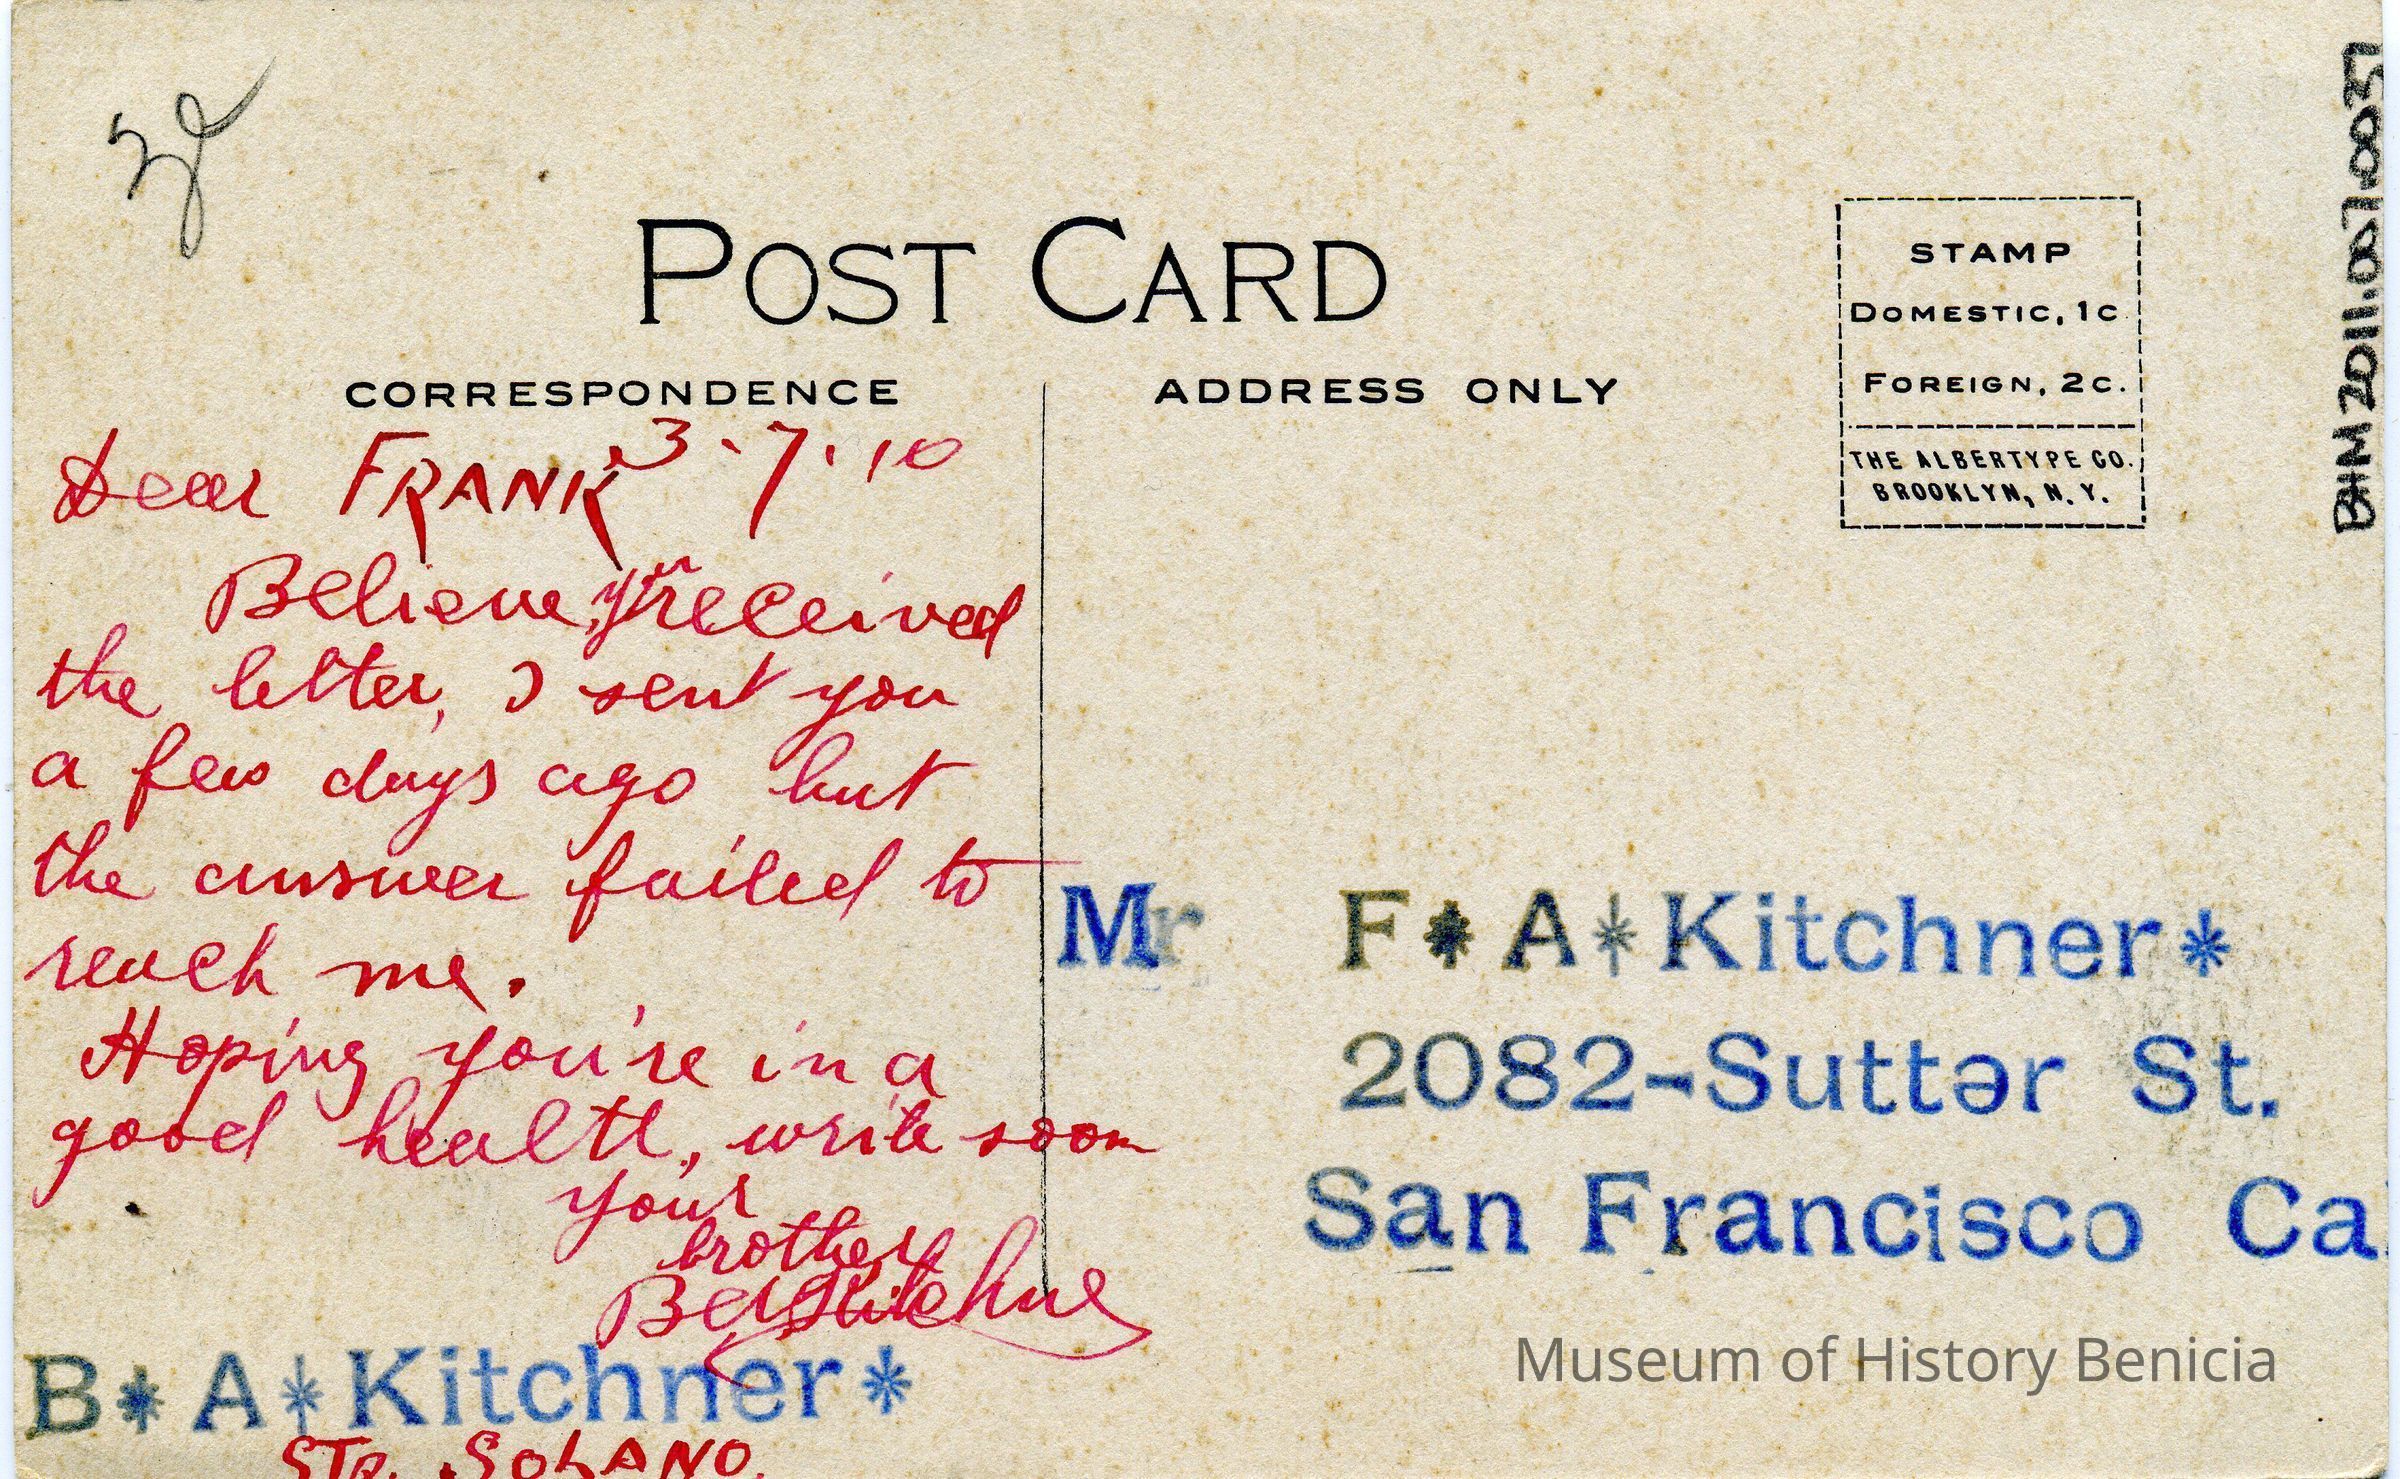 POST CARD
CORRESPONDENCE
ADDRESS ONLY
STAMP
DOMESTIC, 1C
FOREIGN, 2C.
THE ALBERTYPE CO.
BROOKLYN, N. Y.
BHM 2011.007.0051
3-7-10
Dear FRANK
Believe, you received
the letter, I sent you
a few days ago but
the answer failed to
reach me.
Hoping you're in a
good health, write soon
your
brother
Ben Kitchner
B*A*Kitchner*
STR. SOLANO.
Mr F*A*Kitchner*
2082-Sutter St.
San Francisco Cal
Museum of History Benicia